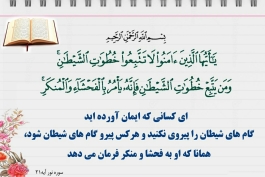 بِسْمِ اللَّهِ الرَّحْمَٰنِ الرَّحِيمِ
يَٰٓأَيُّهَا ٱلَّذِينَ ءَامَنُوا۟ لَا تَتَّبِعُوا۟ خُطُوَٰتِ ٱلشَّيْطَٰنِ ۚ
وَمَن يَتَّبِعْ خُطُوَٰتِ ٱلشَّيْطَٰنِ فَإِنَّهُۥ يَأْمُرُ بِٱلْفَحْشَآءِ وَٱلْمُنكَرِ ۚ
ای کسانی که ایمان آورده اید
گام های شیطان را پیروی نکنید و هرکس پیرو گام های شیطان شود،
همانا که او به فحشا و منکر فرمان می دهد
سوره نور آیه۲۱